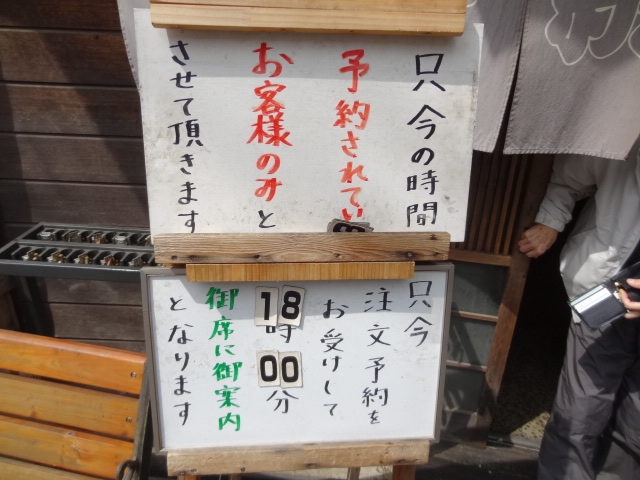 只今の時間
予約されてい
お客様のみと
させて頂きます
只今
注文予約を
お受けして
18時00分
御席に御案内
となります